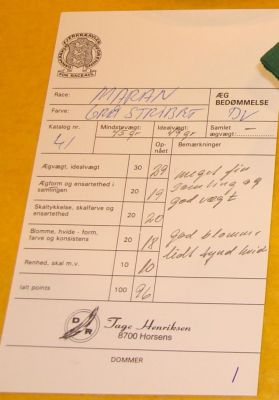 FOR RACEAVL
Race: MARAN
ÆG BEDØMMELSE
Farve: GRÅ STRIBET DV
Katalog nr. Mindstevægt: Idealvægt: Samlet ægvægt:
41 45 gr 49 gr —
Opnået Bemærkninger
Ægvægt, idealvægt 30 29 meget fin
Ægform og ensartethed i samlingen 20 19 samling og
god vægt
Skaltykkelse, skalfarve og ensartethed 20 20
Blomme, hvide - form, farve og konsistens 20 18 god blomme
lidt tynd hvide
Renhed, skal m.v. 10 10
Ialt points 100 96
D R
Tage Henriksen
8700 Horsens
DOMMER
1